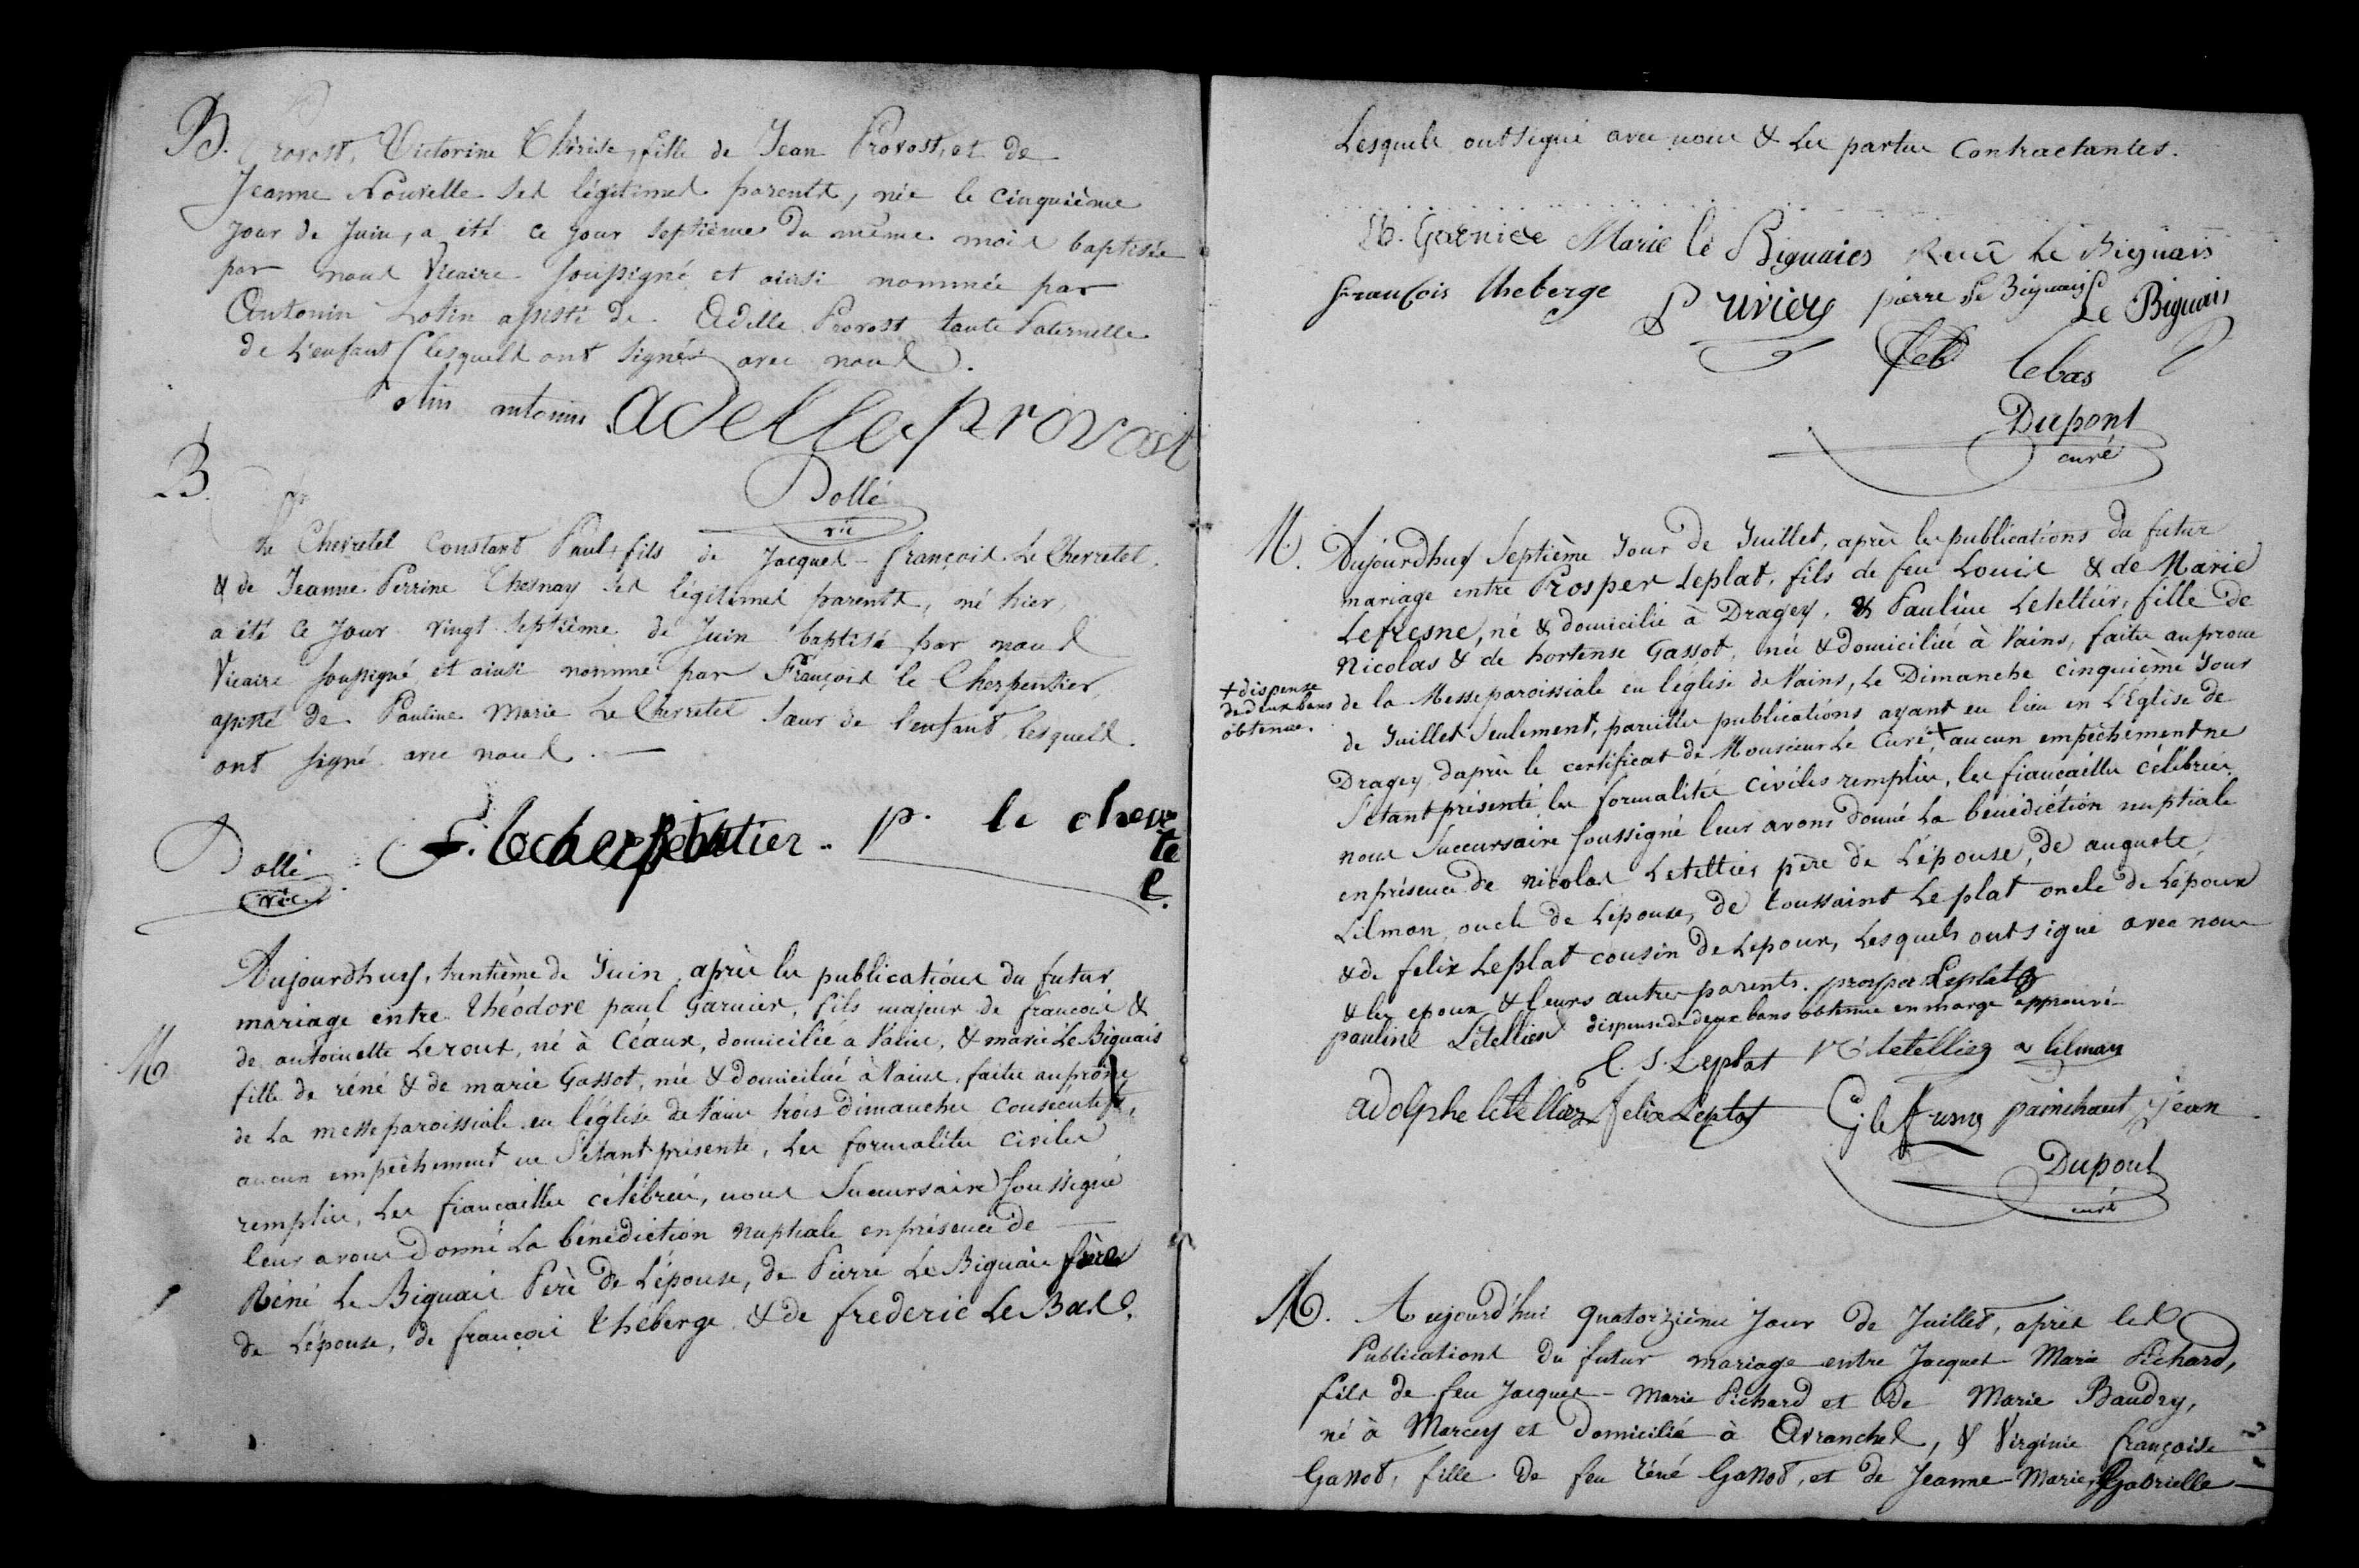 B. Provost, Victorine Thérèse, fille de Jean Provost, et de
Jeanne Nouvelle ses légitimes parents, née le cinquième
jour de Juin, a été ce jour septième du même mois baptisée
par nous Vicaire soussigné et ainsi nommée par
Antonin Lotin assisté de Adelle Provost tante Paternelle
de L'enfant lesquels ont signés avec nous.
antonin adelle provost
Dollé
vic
B.
Le Chevretel Constant Paul, fils de Jacques-françois Le Chevretel.
& de Jeanne Perrine Chesnay ses légitimes parents, né hier,
a été ce jour vingt septième de Juin baptisé par nous
Vicaire soussigné et ainsi nommé par François le Cherpentier,
assisté de Pauline Marie Le Chevretel sœur de l'enfant, lesquels
ont signé avec nous.
F. lecherpentier p. le chevretel.
Dollé
vic.
Aujourdhuy, trentième de Juin, après les publications du futur
mariage entre théodore paul Garnier, fils majeur de françois &
de antoinette Leroux, né à Céaux, domiciliée à Vains, & marie Le Biguais
M
fille de réné & de marie Gassot, née & domiciliée à Vains, faites au prône
de la messe paroissiale en l'église de Vains trois dimanches consécutifs,
aucun empêchement ne s'étant présenté, les formalités civiles
remplies, les fiancailles célébrées, nous Succursaire soussigné
leur avons donné la bénédiction nuptiale en présence de
Réné Le Biguais Père de L'épouse, de Pierre Le Biguais frère
de L'épouse, de françois théberge & de frederic Le Bas.
Lesquels ont signé avec nous & les parties Contractantes.
Garnier Marie le Biguaies René Le Biguais
francois theberge P riviere pierre Le Biguais
Le Biguais
feb lebas
Dupont
curé
M. Aujourdhuy Septième jour de Juillet, après les publications du futur
mariage entre Prosper Leplat, fils de feu Louis & de Marie
Lefresne, né & domicilié à Dragey, & Pauline Letellier, fille de
Nicolas & de hortense Gassot, née & domiciliée à Vains, faites au prone
+ dispense
de deux bans
obtenue.
de la Messe paroissiale en l'église de Vains, Le Dimanche cinquième Jour
de Juillet Seulement, pareilles publications ayant eu lieu en L'Église de
Dragey, d'après le certificat de Monsieur Le Curé,+ aucun empêchement ne
S'étant présenté, les formalités civiles remplies, les fiancailles célébrées,
nous Succursaire soussigné leur avons donné la bénédiction nuptiale
en présence de nicolas Letellier père de L'épouse, de auguste
Lilman, oncle de L'épouse, de toussaint Le plat oncle de L'époux
& de felix Leplat cousin de Lepoux, Lesquels ont signé avec nous
& les epoux & leurs autres parents. prosper Leplat
pauline Letellier dispense de deux bans obtenue en marge approuvé
Leplat N letellier a lilman
adolphe letellier felix Leplat painchaut jean
Dupont
curé
M. Aujourd'hui quatorzième jour de Juillet, après les
Publications du futur mariage entre Jacques Marie Pichard,
fils de feu Jacques-Marie Pichard et de Marie Baudry,
né à Marcey et domicilié à Avranches, & Virginie françoise
Gassot, fille de feu réné Gassot, et de Jeanne-Marie, Gabrielle